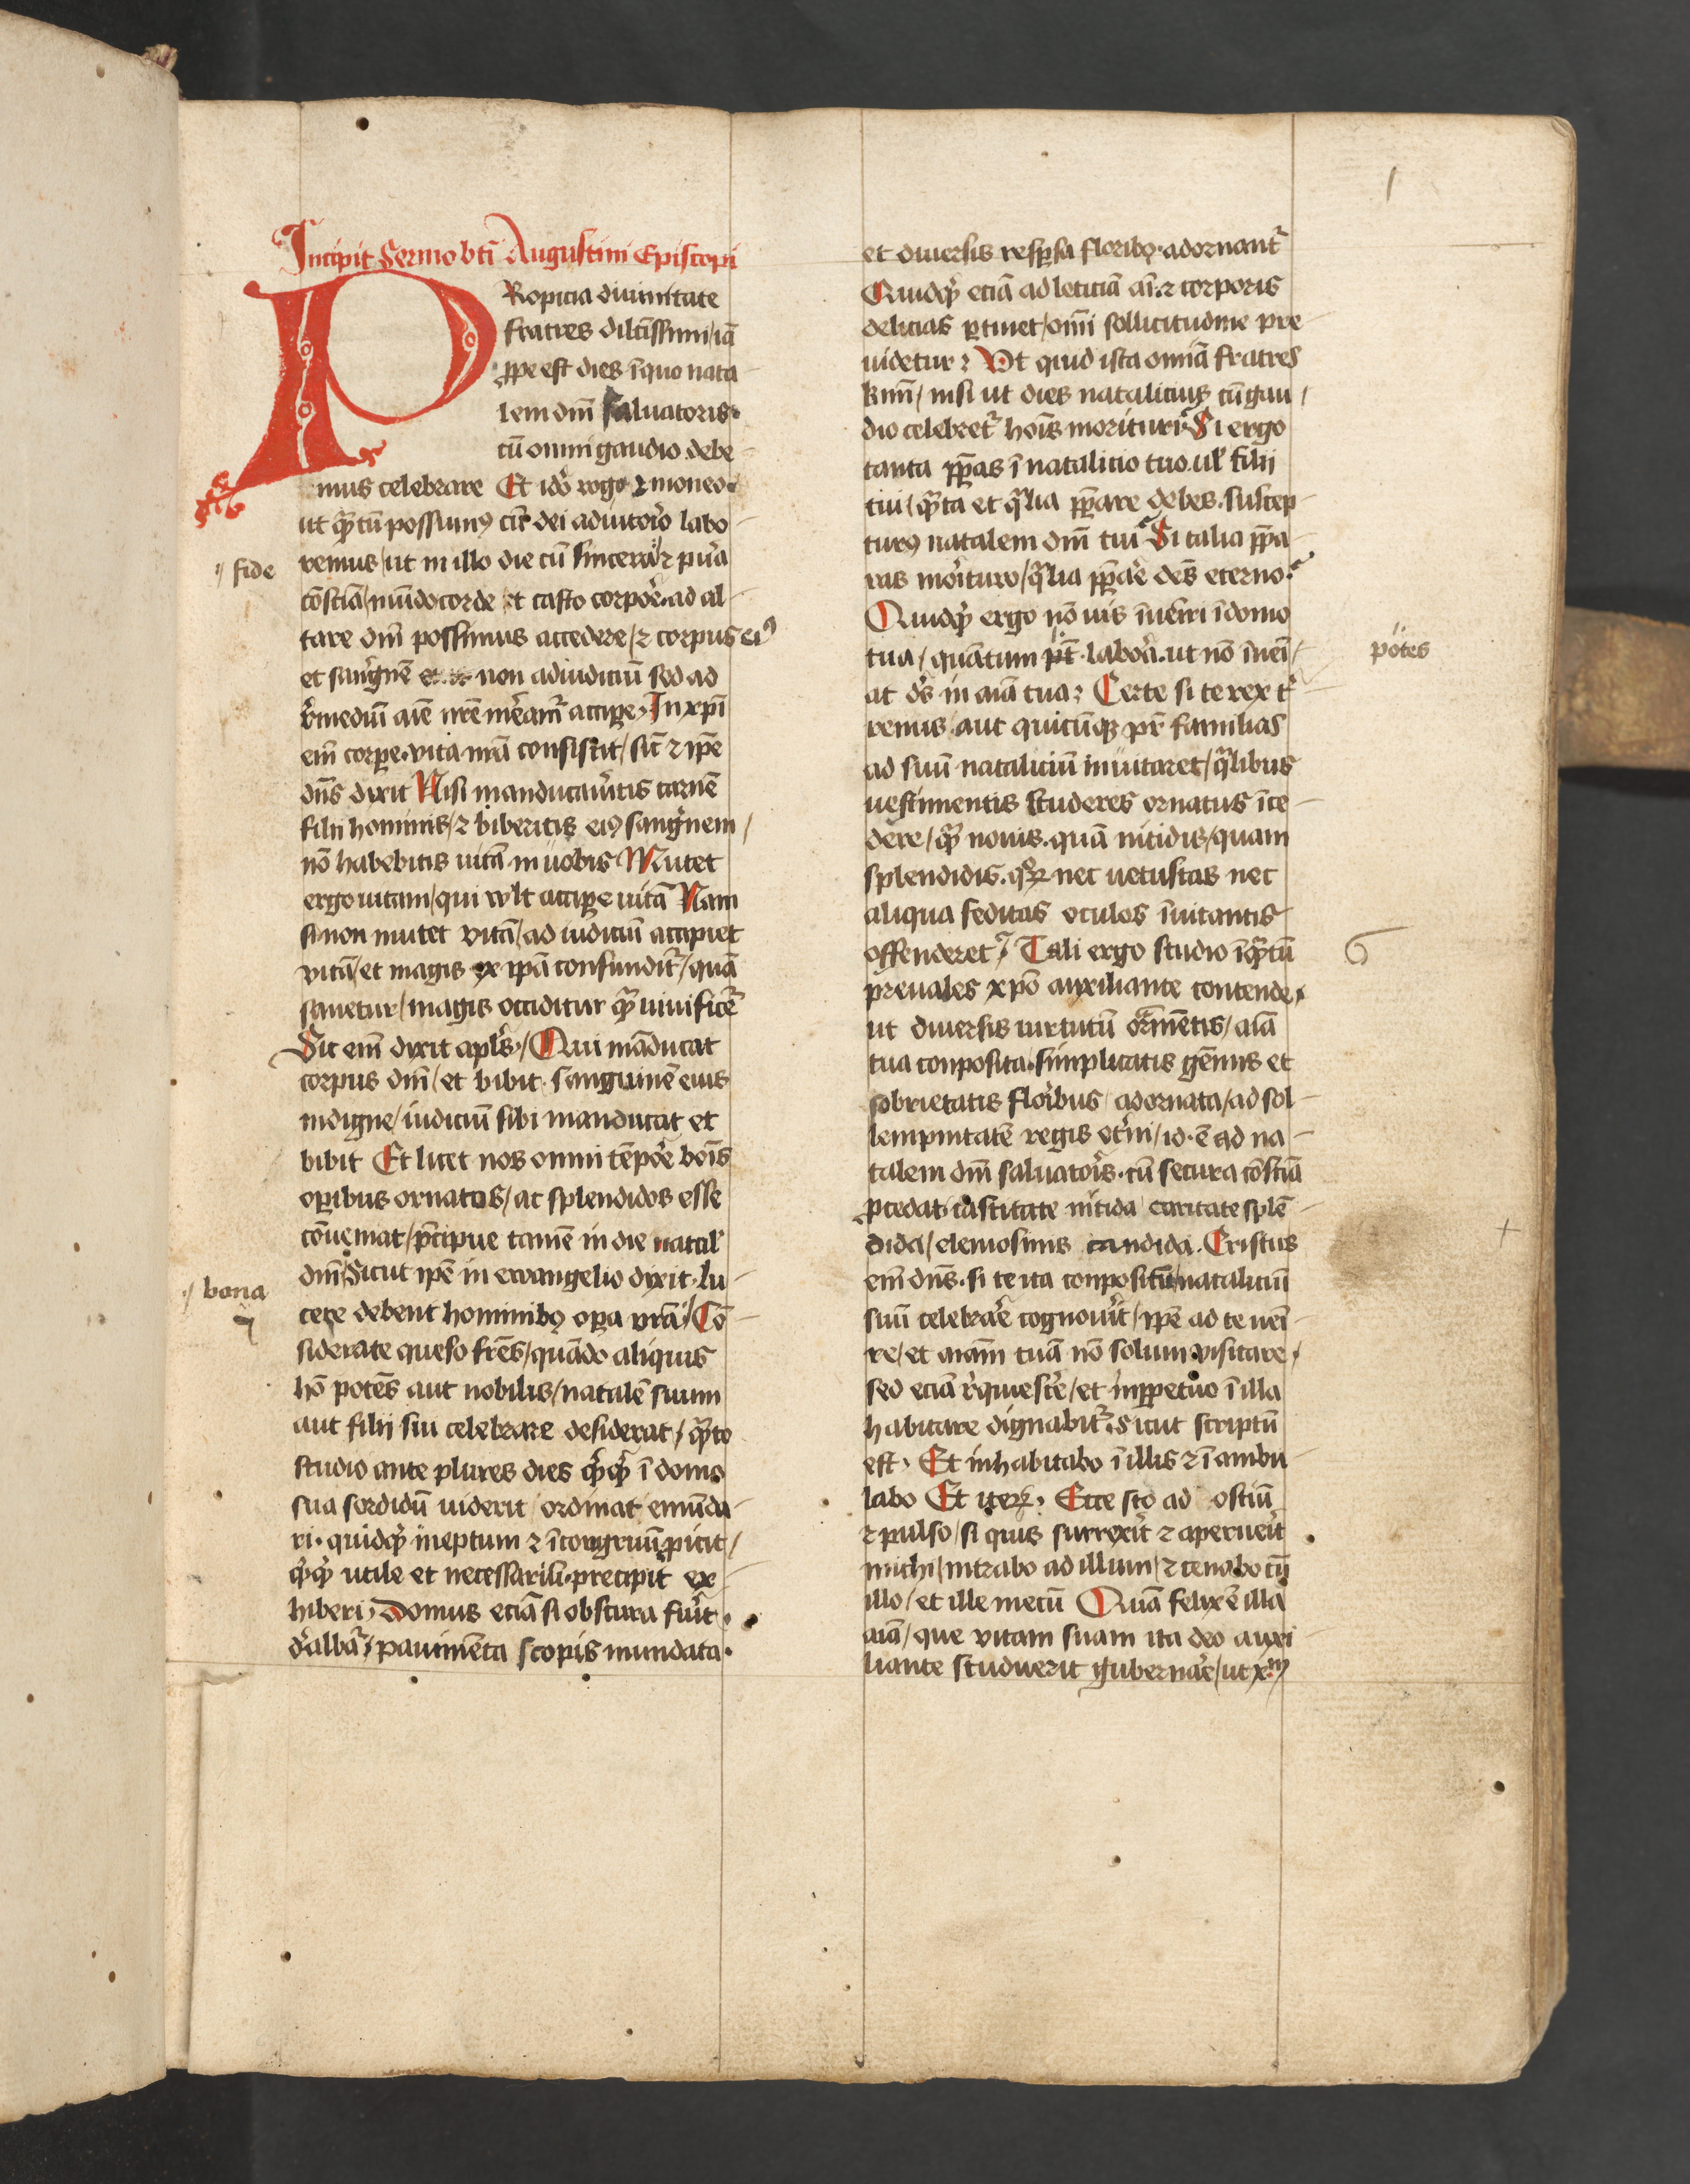 1
Incipit Sermo bti Augustini Episcopi
PRopicia diuinitate
fratres dilctissimi / iā
ꝓpe est dies īquo nata-
lem dnī saluatoris·
cū omni gaudio debe-
mus celebrare Et idō rogo ⁊ moneo·
ut quātū possumꝰ cū dei adiutorio labo-
remus / ut in illo die cū sincera ⁊ pura
fide
cōsciā / mūdo corde et casto corpore ad al-
tare dnī possimus accedere / ⁊ corpus eiꝰ
et sanguinē non adiudiciū sed ad
remediū aīe nrē mereamr accipe, In xpī
enī corpe· vita nrā consistit / sic ⁊ ipē
dns dixit Nisi manducaueritis carnē
filii hominis / ⁊ biberitis eiꝰ sanguinem /
nō habebitis uitā in uobis Mutet
ergo uitam / qui vult accipe uitā Nam
si non mutet vitā / ad iudiciū accipiet
vitā / et magis ex ipā confunditr / quā
sanetur / magis occiditur quā uiuificē
Sic enī dixit apls· / Qui māducat
corpus dnī / et bibit sanguinē eius
indigne / iudiciū sibi manducat et
bibit Et licet nos omni tēpore bonīs
oꝑibus ornatos / ac splendidos esse
cōueniat / p̄cipue tamē in die natal
dnī Sicut ipē in ewangelio dixit· lu-
cere debent hominibꝫ oꝑa vrā / Cō-
bona
siderate queso frēs / quādo aliquis
hō potēs aut nobilis / natalē suum
aut filii sui celebrare desiderat / quāto
studio ante plures dies quicqd ī domo
sua sordidū uiderit ordinat emūda-
ri· quidqd ineptum ⁊ īcongruū ꝓicit /
quicqd utile et necessariū· precipit ex-
hiberi, Domus eciā si obscura fuerit·
dealbatr / pauimēta scopis mundata·
et diuersis respersa floribꝫ· adornantr
Quidqd eciā ad leticiā aī ⁊ corporis
delicias ꝑtinet / omī sollicitudine pre-
uidetur ⁊ Vt quid ista omniā fratres
kmī / nisi ut dies natalicius cū gau /
dio celebretr hoīs morituri Si ergo
tanta ꝑꝑas ī natalicio tuo· ul filii
tui / quāta et qualia ꝑꝑare debes· suscep-
turꝰ natalem dnī tui Si talia ꝑꝑa-
ras morituro / qualia ꝑꝑare debes eterno·
Quidqd ergo nō uis īueniri īdomo
tua / quāntum pt· labora· ut nō īueni /
potes
at ds in aīā tua ⁊ Certe si te rex ter
renus / aut quicūqꝫ pr familias
ad suū nataliciū inuitaret / qualibus
uestimentis studeres ornatus īce-
dere / quā nouis· quā nitidis / quam
splendidis· quorum nec uetustas nec
aliqua feditas oculos īuitantis
offenderet· / Tali ergo studio īquātū
preuales xpō auxiliante contende·
ut diuersis uirtutū ornamētis / aīā
tua conposita· simplicitatis gēmis et
sobrietatis floribus adornata / ad sol-
lempnitatē regis eterni / id·ē ad na-
talem dnī saluatoris· cū secura cōsciā
ꝓcedat· castitate nitida caritate splē-
dida / elemosinis candida· Cristus
enī dns· si te ita conpositū nataliciū
suū celebrare cognouerit / ipē ad te ueni-
re / et aīam tuā nō solum visitare,
sed eciā requiescere / et inꝑpetuo ī illa
habitare dignabitr Sicut scriptū
est, Et inhabitabo ī illis ⁊ ī ambu-
labo Et iterū, Ecce sto ad ostiū
⁊ pulso / si quis surrexerit ⁊ aperuerit
michi / intrabo ad illum / ⁊ cenabo cū
illo / et ille mecū Quā felix ē illa
aīā / que vitam suam ita deo auxi-
liante studuerit gubernare / ut xm